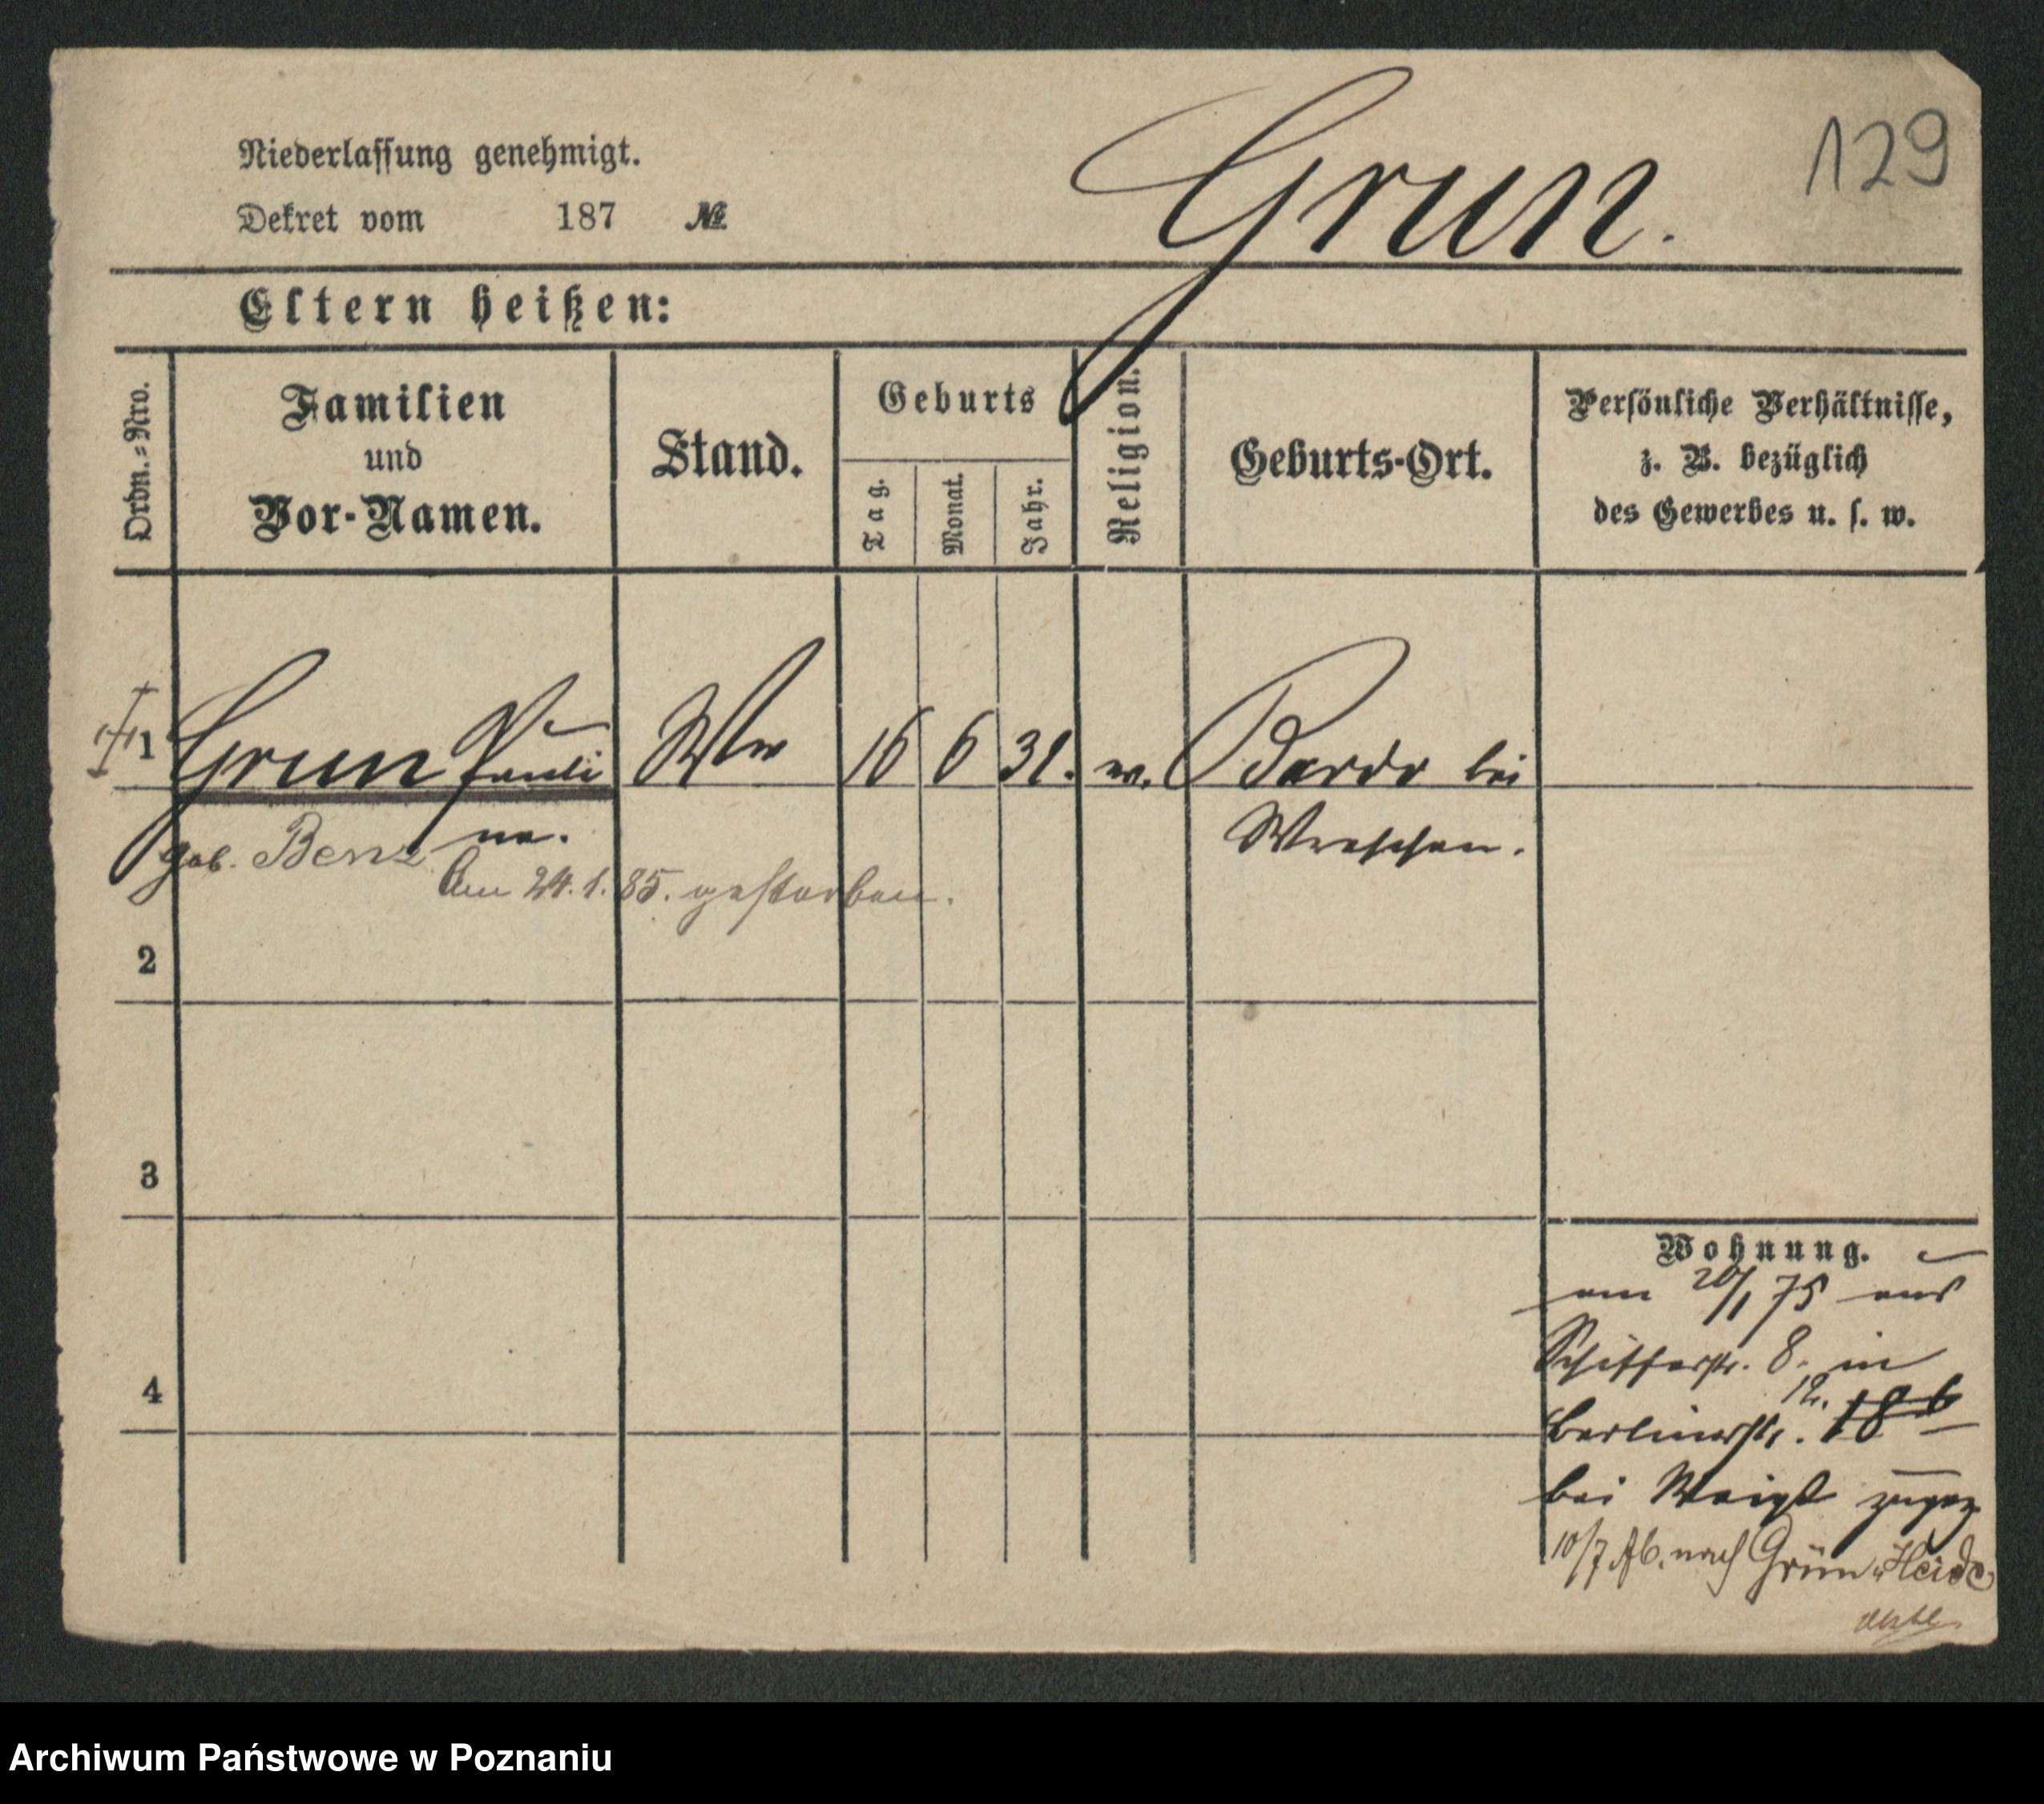 129
Niederlassung genehmigt.
Dekret vom 187 №
Grun.
Eltern heißen:
Ordn.=Nro.
Familien
und
Vor-Namen.
Stand.
Geburts
Tag.
Monat.
Jahr.
Religion.
Geburts-Ort.
Persönliche Verhältnisse,
z. B. bezüglich
des Gewerbes u. s. w.
1 Grun Pauli Ww 16 6 31. Bardo bei
ne. Wreschen.
geb. Benz
Am 24.1.85. gestorben.
2
3
4
Wohnung.
am 20/1 75 aus
Schifferstr. 8. in
12.
Berlinerstr. 18b
bei Weigt zugez
10/7 Ab. nach Grün Heide
Archiwum Państwowe w Poznaniu